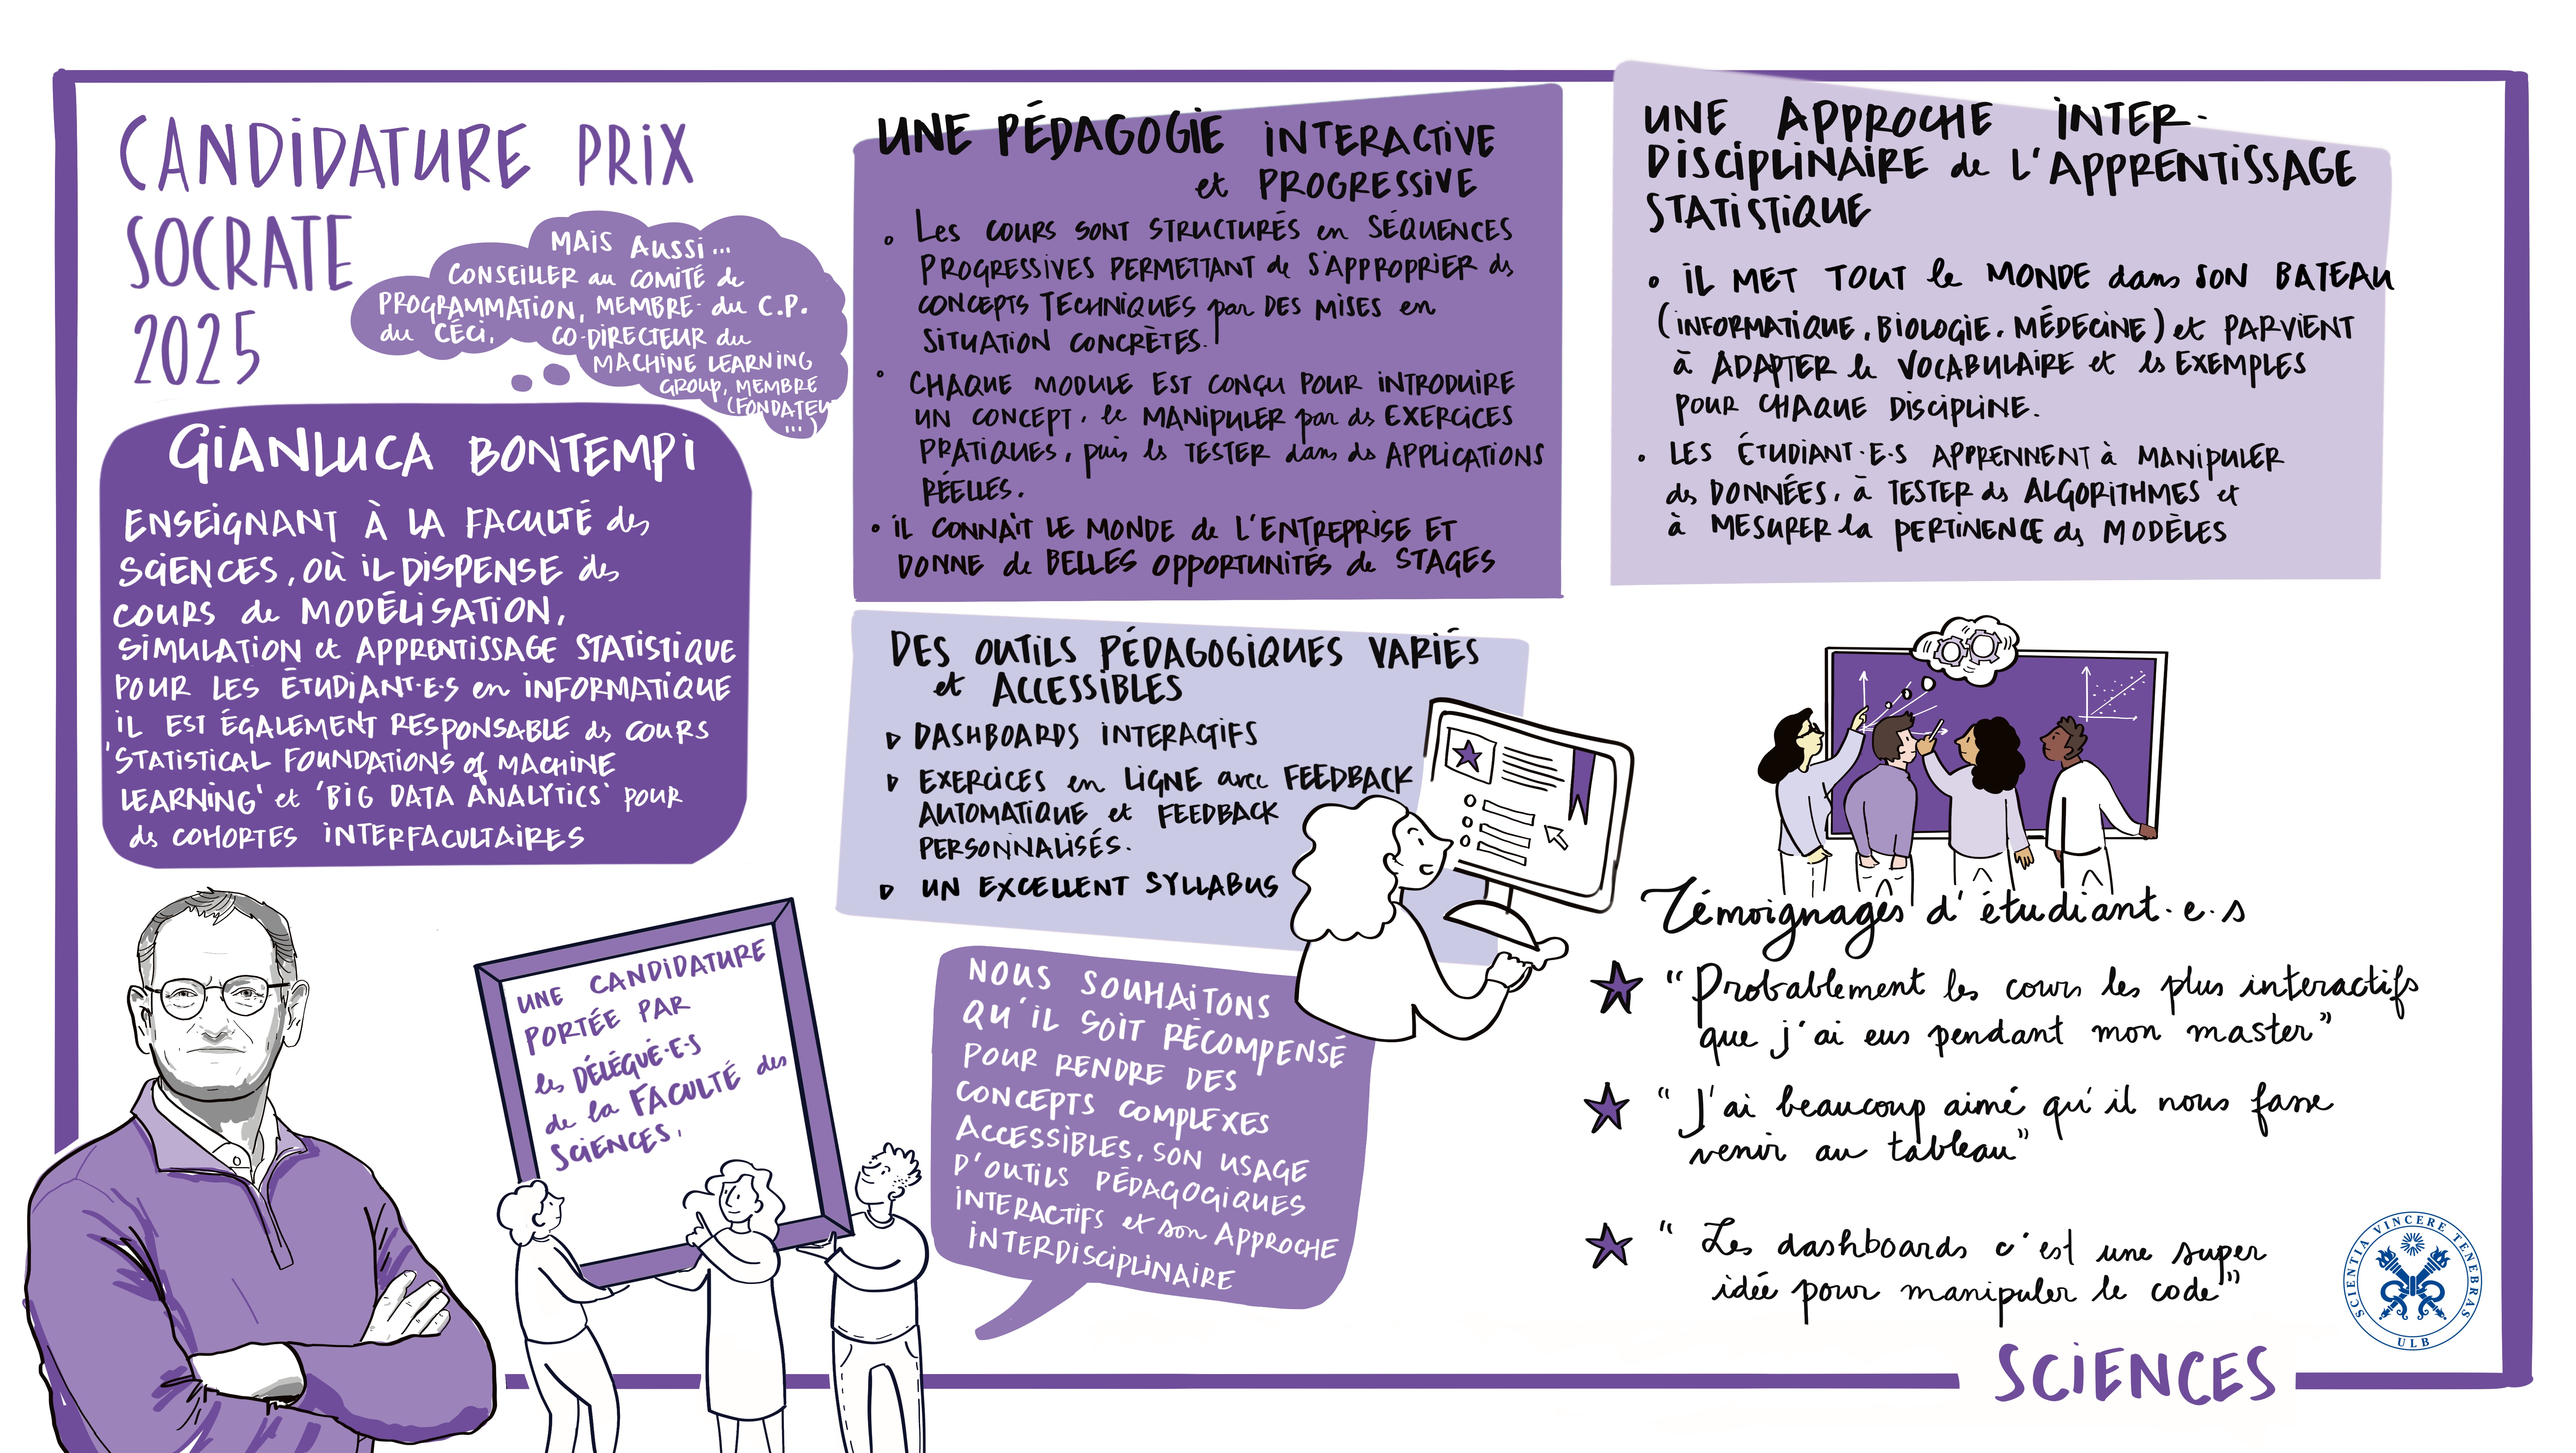 CANDIDATURE PRIX
SOCRATE
2025
MAIS AUSSI...
CONSEILLER au COMITÉ de
PROGRAMMATION, MEMBRE du C.P.
du CÉCI, CO-DIRECTEUR du
MACHINE LEARNING
GROUP, MEMBRE
(FONDATEU
...)
GIANLUCA BONTEMPI
ENSEIGNANT À LA FACULTÉ des
SCIENCES, OÙ IL DISPENSE des
COURS de MODÉLISATION,
SIMULATION et APPRENTISSAGE STATISTIQUE
POUR LES ÉTUDIANT·E·S en INFORMATIQUE
IL EST ÉGALEMENT RESPONSABLE des COURS
'STATISTICAL FOUNDATIONS of MACHINE
LEARNING' et 'BIG DATA ANALYTICS' POUR
des COHORTES INTERFACULTAIRES
UNE CANDIDATURE
PORTÉE PAR
les DÉLÉGUÉ·E·S
de la FACULTÉ des
SCIENCES.
UNE PÉDAGOGIE INTERACTIVE
et PROGRESSIVE
• Les COURS SONT STRUCTURÉS en SÉQUENCES
PROGRESSIVES PERMETTANT de S'APPROPRIER des
CONCEPTS TECHNIQUES par DES MISES en
SITUATION CONCRÈTES.
• CHAQUE MODULE EST CONÇU POUR INTRODUIRE
UN CONCEPT, le MANIPULER par des EXERCICES
PRATIQUES, puis les TESTER dans des APPLICATIONS
RÉELLES.
• IL CONNAIT LE MONDE de L'ENTREPRISE ET
DONNE de BELLES OPPORTUNITÉS de STAGES
DES OUTILS PÉDAGOGIQUES VARIÉS
et ACCESSIBLES
▷ DASHBOARDS INTERACTIFS
▷ EXERCICES en LIGNE avec FEEDBACK
AUTOMATIQUE et FEEDBACK
PERSONNALISÉS.
▷ UN EXCELLENT SYLLABUS
NOUS SOUHAITONS
QU'IL SOIT RÉCOMPENSÉ
POUR RENDRE DES
CONCEPTS COMPLEXES
ACCESSIBLES, SON USAGE
D'OUTILS PÉDAGOGIQUES
INTERACTIFS et son APPROCHE
INTERDISCIPLINAIRE
UNE APPROCHE INTER-
DISCIPLINAIRE de L'APPRENTISSAGE
STATISTIQUE
• IL MET TOUT le MONDE dans SON BATEAU
(INFORMATIQUE, BIOLOGIE, MÉDECINE) et PARVIENT
à ADAPTER le VOCABULAIRE et les EXEMPLES
POUR CHAQUE DISCIPLINE.
• LES ÉTUDIANT·E·S APPRENNENT à MANIPULER
des DONNÉES, à TESTER des ALGORITHMES et
à MESURER la PERTINENCE des MODÈLES
Témoignages d'étudiant·e·s
★ "Probablement les cours les plus interactifs
que j'ai eus pendant mon master"
★ "J'ai beaucoup aimé qu'il nous fasse
venir au tableau"
★ "Les dashboards c'est une super
idée pour manipuler le code"
SCIENTIA VINCERE TENEBRAS
ULB
SCIENCES